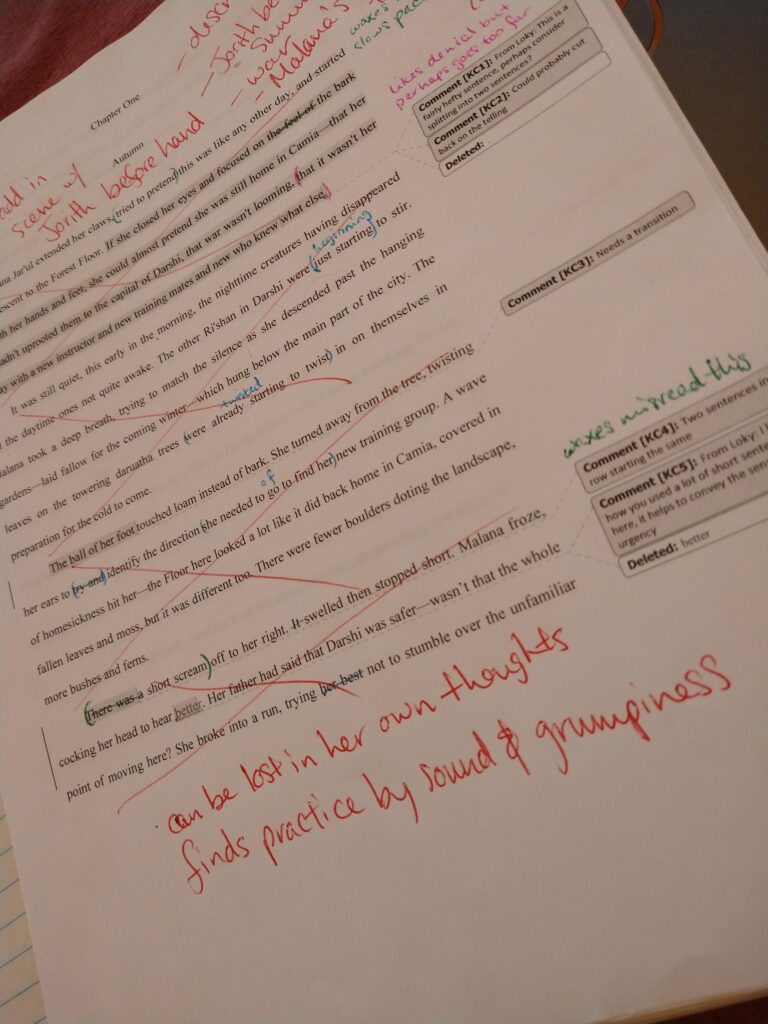 Jorith be
war
Malana's
waxes
slows pac
likes denial but
perhaps goes too far
add in
scene w/
Jorith before hand
Chapter One
Autumn
na Jar'ul extended her claws, (tried to pretend) this was like any other day, and started
escent to the Forest Floor. If she closed her eyes and focused on the feel of the bark
th her hands and feet, she could almost pretend she was still home in Camia—that her
hadn't uprooted them to the capital of Darshi, that war wasn't looming, (that it wasn't her
ay with a new instructor and new training mates and new who knew what else.)
It was still quiet, this early in the morning, the nighttime creatures having disappeared
beginning
d the daytime ones not quite awake. The other Ri'shan in Darshi were (just starting) to stir.
Malana took a deep breath, trying to match the silence as she descended past the hanging
gardens—laid fallow for the coming winter—which hung below the main part of the city. The
twisted
leaves on the towering daruatha trees (were already starting to twist) in on themselves in
preparation for the cold to come.
The ball of her foot touched loam instead of bark. She turned away from the tree, twisting
of
her ears to (try and) identify the direction (she needed to go to find her) new training group. A wave
of homesickness hit her—the Floor here looked a lot like it did back home in Camia, covered in
fallen leaves and moss, but it was different too. There were fewer boulders doting the landscape,
more bushes and ferns.
(There was a short scream) off to her right. It swelled then stopped short. Malana froze,
cocking her head to hear better. Her father had said that Darshi was safer—wasn't that the whole
point of moving here? She broke into a run, trying her best not to stumble over the unfamiliar
Comment [KC1]: From Loky: This is a
fairly hefty sentence, perhaps consider
splitting into two sentences?
Comment [KC2]: Could probably cut
back on the telling
Deleted:
Comment [KC3]: Needs a transition
waxes misread this
Comment [KC4]: Two sentences in
row starting the same
Comment [KC5]: From Loky: I l
how you used a lot of short sente
here, it helps to convey the sens
urgency
Deleted: better
can be lost in her own thoughts
finds practice by sound & grumpiness